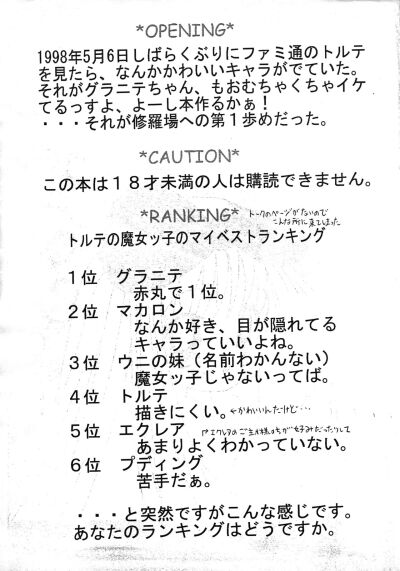 *OPENING*
1998年5月6日しばらくぶりにファミ通のトルテ
を見たら、なんかかわいいキャラがでていた。
それがグラニテちゃん、もおむちゃくちゃイケ
てるっすよ、よーし本作るかぁ!
・・・それが修羅場への第1歩めだった。
*CAUTION*
この本は18才未満の人は購読できません。
*RANKING* トークのページがないので
こんな所に来てしまった
トルテの魔女ッ子のマイベストランキング
1位 グラニテ
赤丸で1位。
2位 マカロン
なんか好き、目が隠れてる
キャラっていいよね。
3位 ウニの妹(名前わかんない)
魔女ッ子じゃないってば。
4位 トルテ
描きにくい。←かわいいんだけど…
5位 エクレア エクレアのご主人様のちが好みだったりして
あまりよくわかっていない。
6位 プディング
苦手だぁ。
・・・と突然ですがこんな感じです。
あなたのランキングはどうですか。